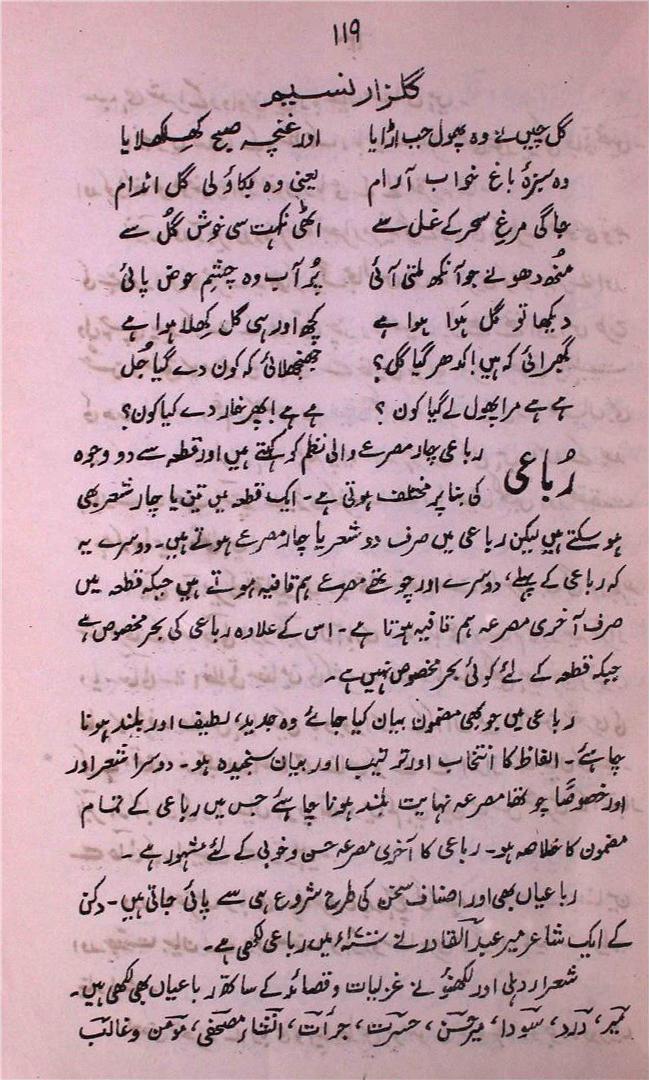 ۱۱۹
گلزار نسیم
گل چیں نے وہ پھول جب اڑایا اور غنچہ صبح کھلکھلایا
وہ سبزۂ باغ خواب آرام یعنی وہ بکاؤلی گل اندام
جاگی مرغ سحر کے غل سے اٹھی نکہت سی خوش گل سے
منھ دھونے جو آنکھ ملتی آئی پُر آب وہ چشم عوض پائی
دیکھا تو گل ہَوا ہوا ہے کچھ اور ہی گل کھلا ہوا ہے
گھبرائی کہ ہیں! کدھر گیا گل؟ جھنجھلائی کہ کون دے گیا جُل
ہے ہے مرا پھول لے گیا کون؟ ہے ہے! پھر خار دے گیا کون؟
رُباعی رباعی چار مصرعے والی نظم کو کہتے ہیں اور قطعہ سے دو وجوہ
کی بنا پر مختلف ہوتی ہے۔ ایک قطعہ میں تین یا چار شعر بھی
ہو سکتے ہیں لیکن رباعی میں صرف دو شعر یا چار مصرعے ہوتے ہیں۔ دوسرے یہ
کہ رباعی کے پہلے، دوسرے اور چوتھے مصرعے ہم قافیہ ہوتے ہیں جبکہ قطعہ میں
صرف آخری مصرعہ ہم قافیہ ہوتا ہے۔ اس کے علاوہ رباعی کی بحر مخصوص ہے
جبکہ قطعہ کے لئے کوئی بحر مخصوص نہیں ہے۔
رباعی میں جو بھی مضمون بیان کیا جائے وہ جدید، لطیف اور بلند ہونا
چاہئے۔ الفاظ کا انتخاب اور ترتیب اور بیان سنجیدہ ہو۔ دوسرا شعر اور
اور خصوصًا چوتھا مصرعہ نہایت بلند ہونا چاہئے جس میں رباعی کے تمام
مضمون کا خلاصہ ہو۔ رباعی کا آخری مصرعہ حسن و خوبی کے لئے مشہور ہے۔
رباعیاں بھی اور اصناف سخن کی طرح شروع ہی سے پائی جاتی ہیں۔ دکن
کے ایک شاعر میر عبدالقادر نے میں رباعی لکھی ہے۔
شعرا دہلی اور لکھنؤ نے غزلیات و قصائد کے ساتھ رباعیاں بھی لکھی ہیں۔
میر، درد، سودا، میر حسن، حسرت، جرأت، انشاء مصحفی، مومن و غالب